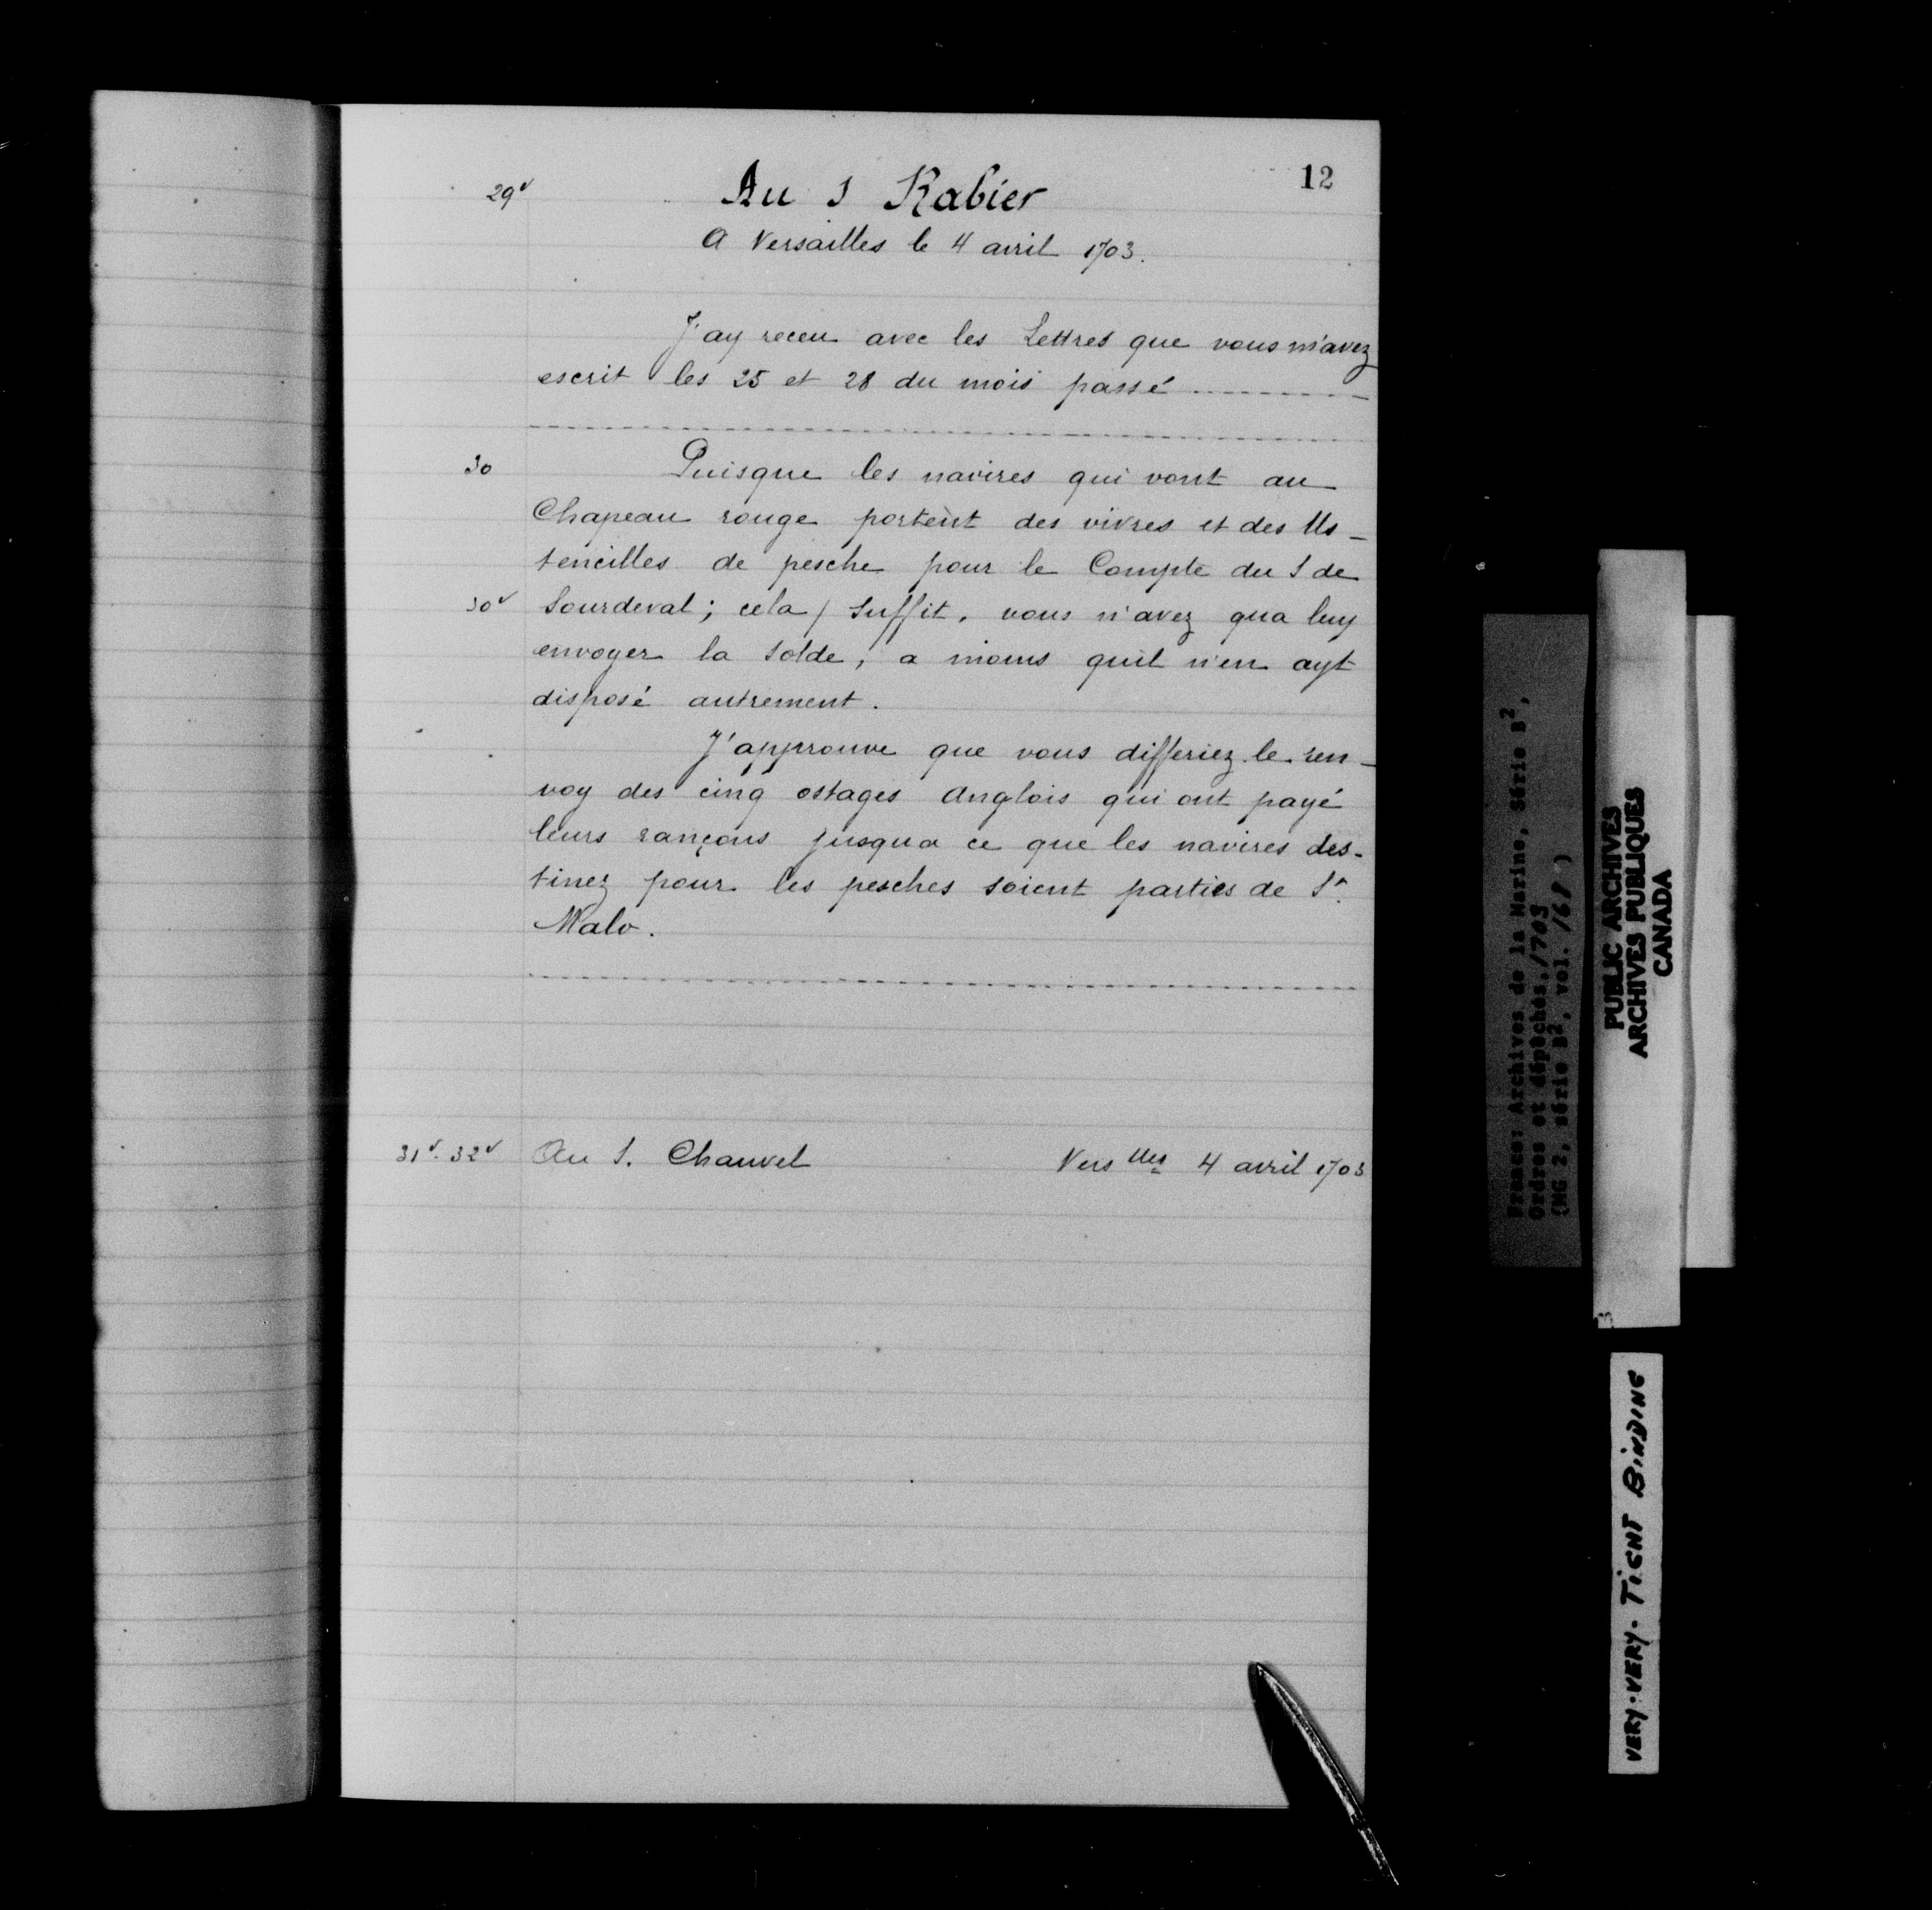 12
29v Au S Rabier
A Versailles le 4 avril 1703.
J'ay receu avec les Lettres que vous m'avez
escrit les 25 et 28 du mois passé
30 Puisque les navires qui vont au
Chapeau rouge portent des vivres et des Us-
tencilles de pesche pour le Compte du S de
30v Sourdeval; cela / suffit, vous n'avez qua luy
envoyer la solde, a moins quil n'en ayt
disposé autrement.
J'approuve que vous differiez le ren-
voy des cinq ostages Anglois qui ont payé
leurs rançons jusqua ce que les navires des-
tinez pour les pesches soient parties de St.
Malo.
31v-32v Au S. Chauvel Vers lles 4 avril 1703
France: Archives de la Marine, Série B2,
Ordres et dépêches, 1703
(MG 2, série B2, vol. 168)
PUBLIC ARCHIVES
ARCHIVES PUBLIQUES
CANADA
3
VERY-VERY-TIGHT BINDING